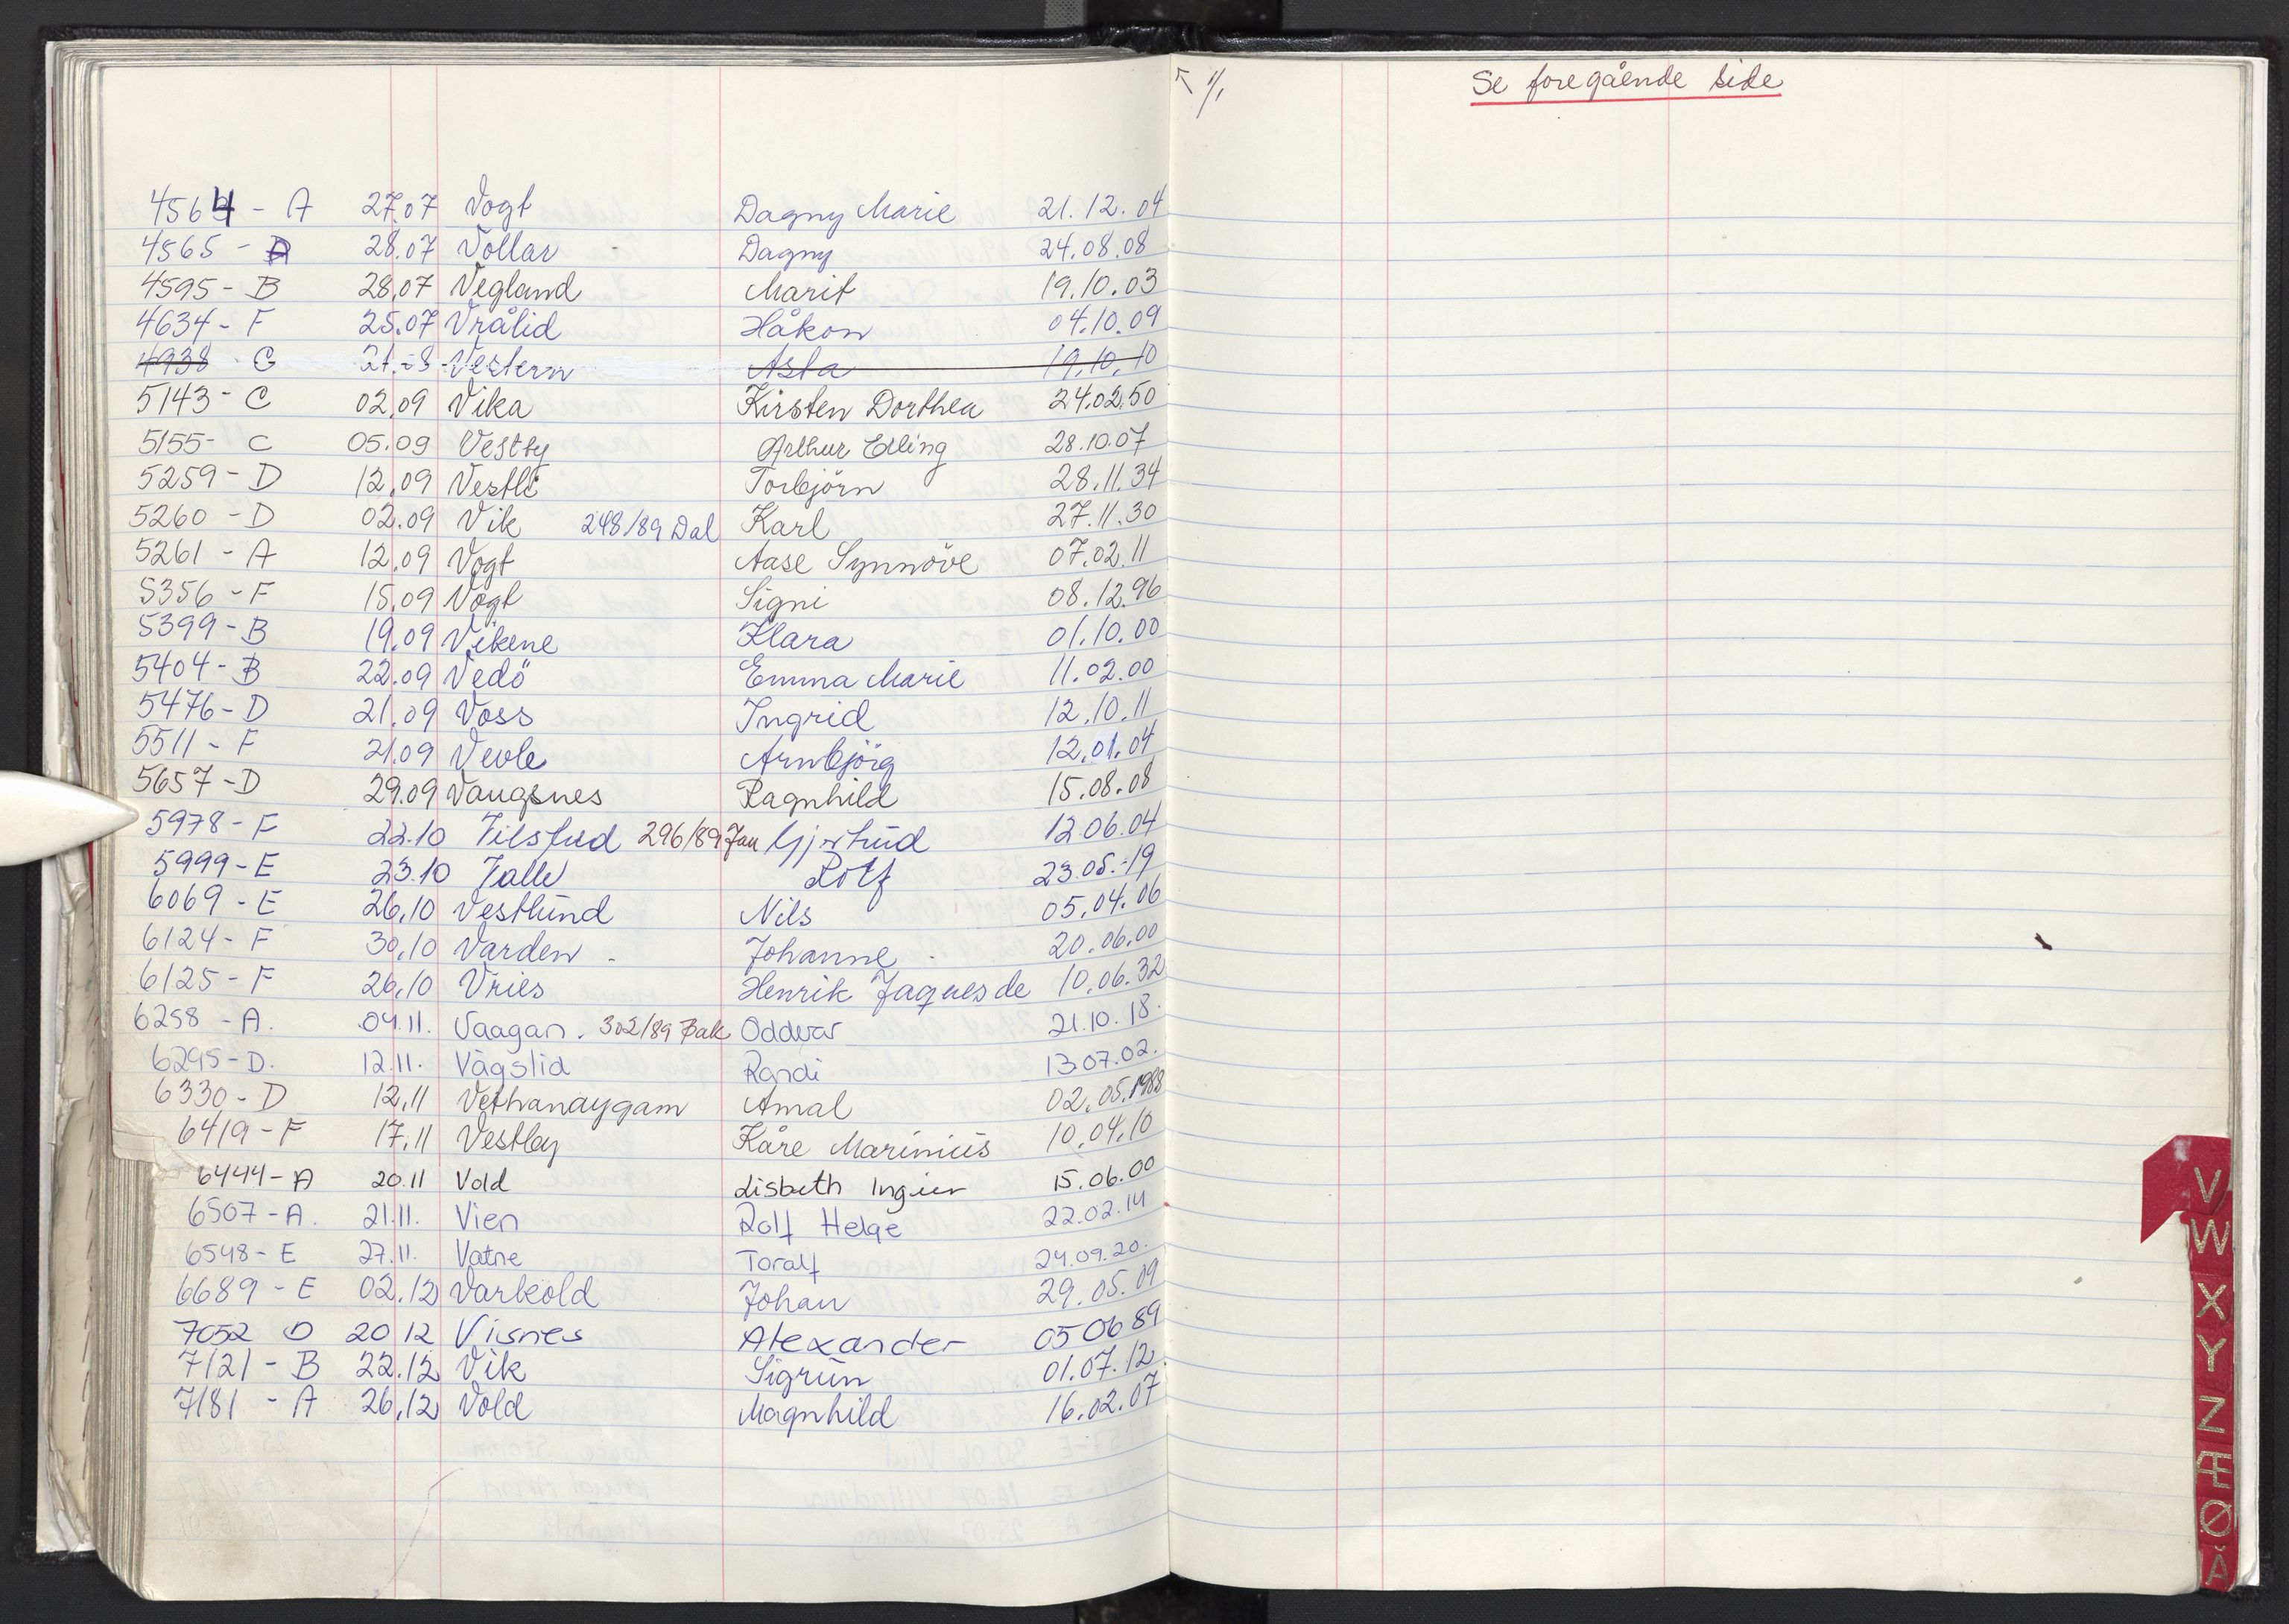 4564 - A 27.07 Vogt Dagny Marie 21.12.04
4565 - A 28.07 Vollar Dagny 24.08.08
4595 - B 28.07 Vegland Marit 19.10.03
4634 - F 25.07 Vrålid Håkon 04.10.09
4938 G 21.-8 Vestern Asta 19.10.10
5143 - C 02.09 Vika Kirsten Dorthea 24.02.50
5155 - C 05.09 Vestby Arthur Elling 28.10.07
5259 - D 12.09 Vestli Torbjörn 28.11.34
5260 - D 02.09 Vik 248/89 Dal Karl 27.11.30
5261 - A 12.09 Vogt Aase Synnöve 07.02.11
5356 - F 15.09 Vogt Signi 08.12.96
5399 - B 19.09 Vikene Klara 01.10.00
5404 - B 22.09 Vedö Emma Marie 11.02.00
5476 - D 21.09 Voss Ingrid 12.10.11
5511 - F 21.09 Vevle Arnbjörg 12.01.04
5657 - D 29.09 Vangsnes Ragnhild 15.08.08
5978 - F 22.10 296/89 Jan Gjertrud 12.06.04
5999 - E 23.10 Valle Rolf 23.05.-19
6069 - E 26.10 Vestlund Nils 05.04.06
6124 - F 30.10 Varden - Johanne 20.06.00
6125 - F 26.10 Vries Henrik Jaques de 10.06.32
6258 - A. 04.11. Vaagan. 302/89 Bak Oddvar 21.10.18.
6295 - D. 12.11. Vågslid Randi 13.07.02.
6330 - D 12.11 Vethanaygam Amal 02.05.1988
6419 - F 17.11 Vestby Kåre Marinius 10.04.10
6444 - A 20.11 Vold Lisbeth Ingier 15.06.00
6507 - A. 21.11. Vien Rolf Helge 22.02.14
6548 - E 27.11. Vatne Toralf 24.09.20.
6689 - E 02.12 Varkold Johan 29.05.09
7052 D 20 12 Visnes Alexander 05 06 89
7121 - B 22.12 Vik Sigrun 01.07.12.
7181 - A 26.12 Vold Magnhild 16.02.07
↖ 1/1 Se foregående side
V
W
X
Y
Z
Æ
Ø
Å